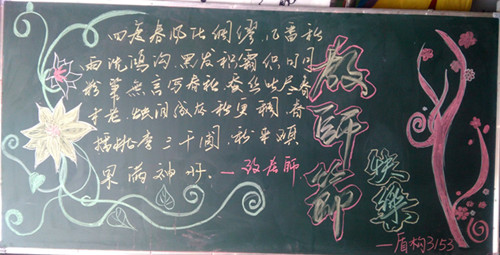 四度春风化绸缪,几番秋
雨洗鸿沟.黑发积霜织日月
粉笔无言写春秋.蚕丝吐尽春
未老,烛泪成灰秋更稠.春
播桃李三千圃,秋来硕
果满神州.—致老師
教師節
快樂
—盾构3153